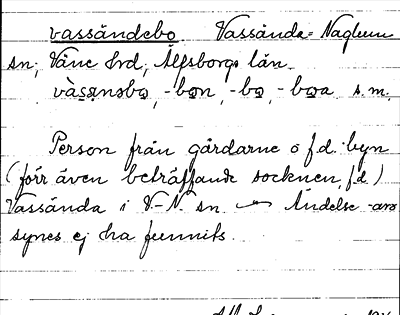 vassändebo. Vassända-Naglum
sn; Väne hrd; Älfsborgs län.
vàsạnsbo̱, -bo̱n, -bo̱, -bo̱a s.m.
Person från gårdarne o f.d. byn
(förr även beträffande socknen f.d.)
Vassända i V.-N. sn. — Ändelse -are
synes ej ha funnits.